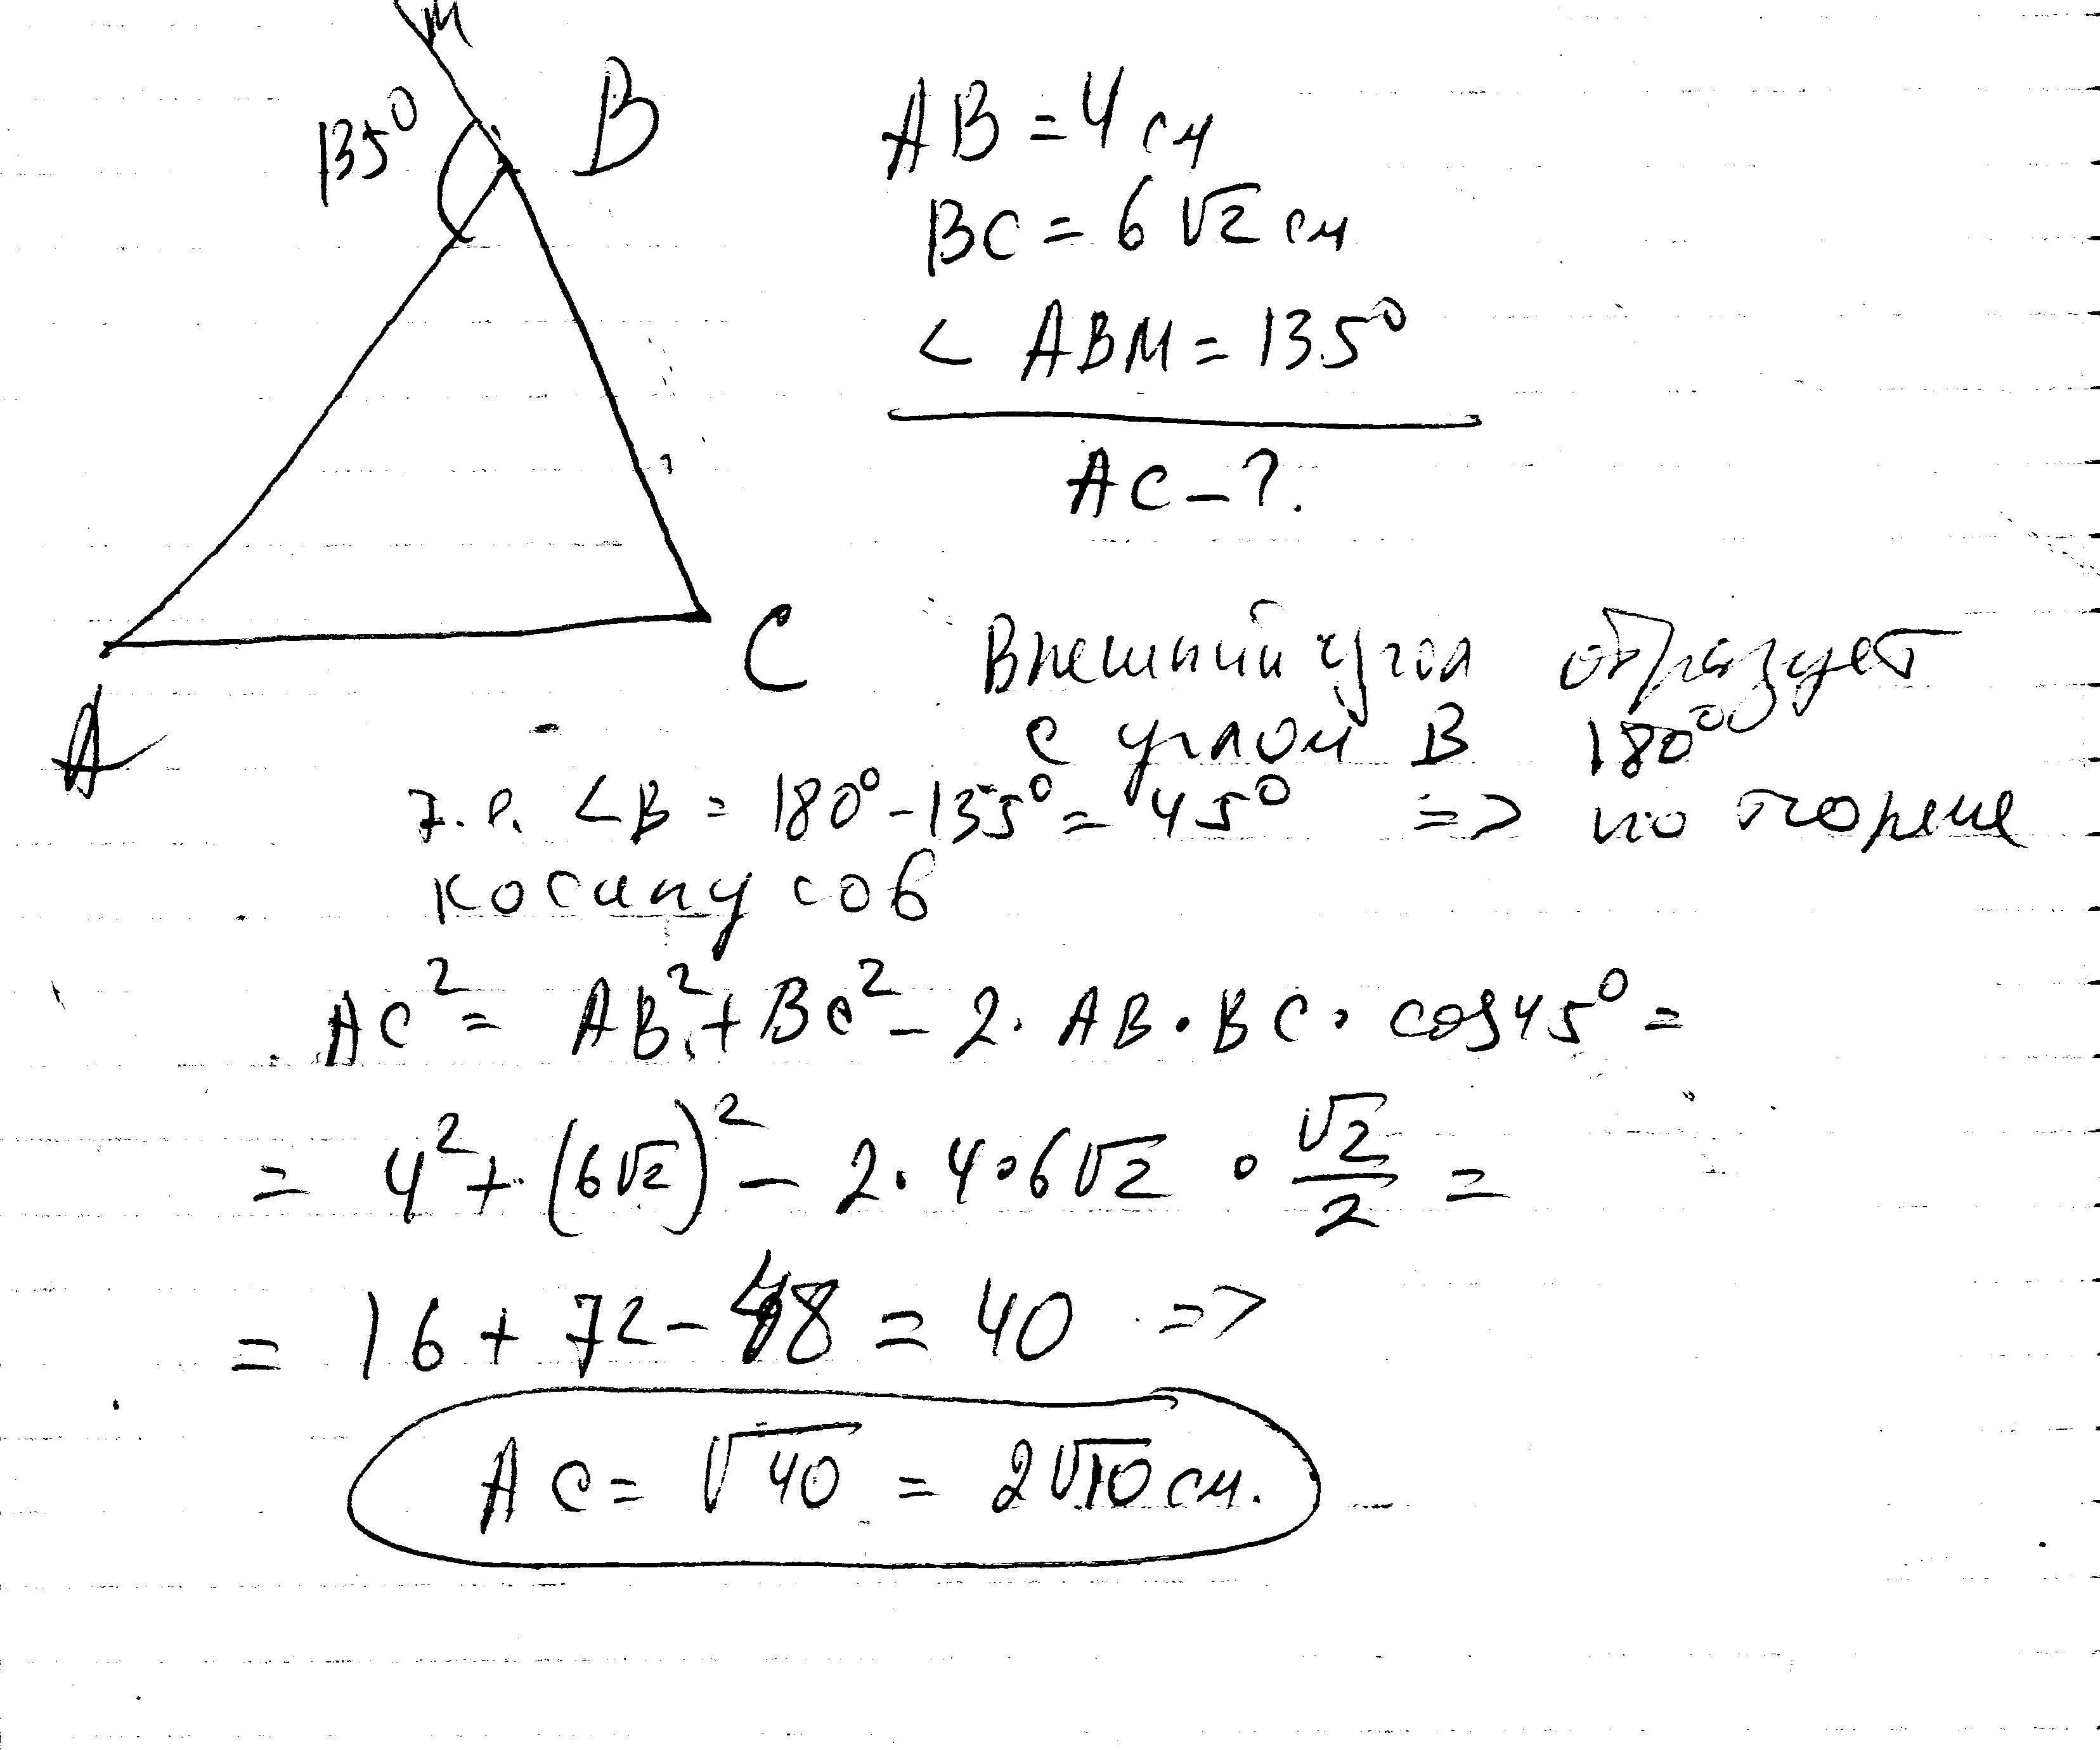 M
135°
B
AB = 4 см
BC = 6√2 см
< ABM = 135°
AC - ?.
C
A
Внешний угол образует
с углом B 180°
т.е. <B = 180° - 135° = 45° => по теореме
косинусов
AC² = AB² + BC² - 2 · AB · BC · cos45° =
= 4² + (6√2)² - 2 · 4 · 6√2 · √2/2 =
= 16 + 72 - 48 = 40 =>
AC = √40 = 2√10 см.